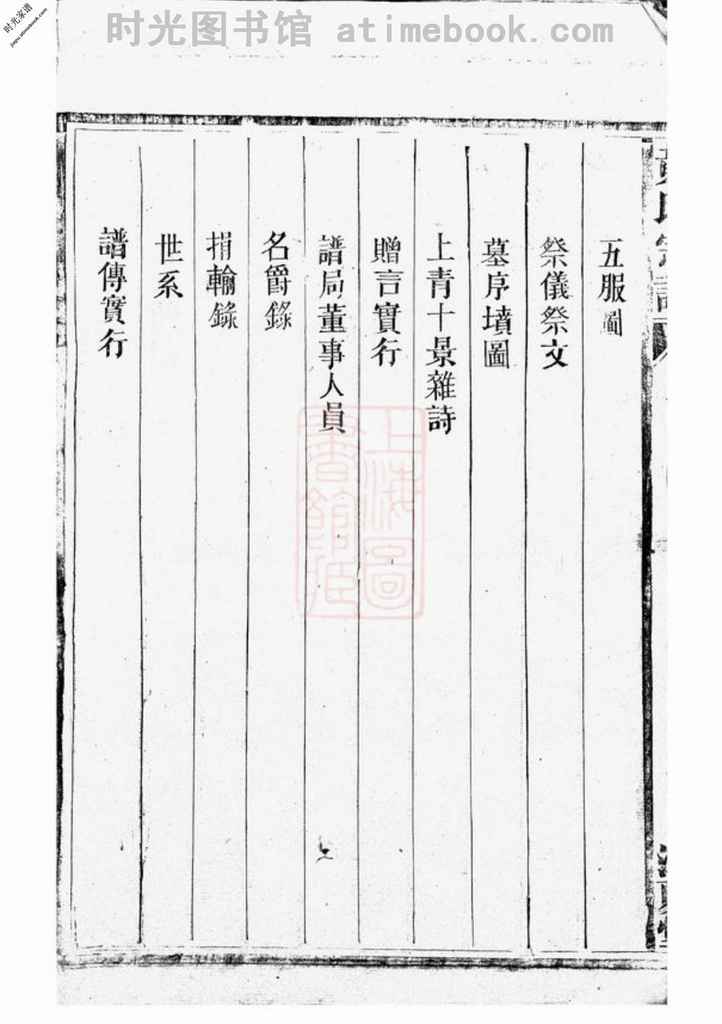 时光图书馆 atimebook.com
时光家谱
jiapu.atimebook.com
五服圖
祭儀祭文
墓序墳圖
上青十景雜詩
贈言實行
譜局董事人員
名爵錄
捐輸錄
世系
譜傳實行
上海圖
書館藏